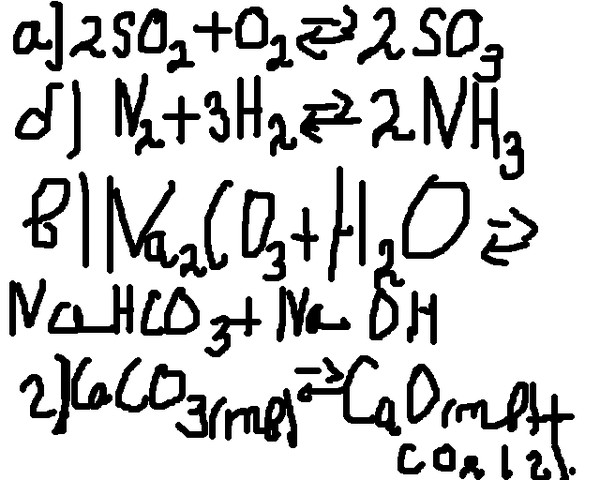 а) 2SO₂ + O₂ ⇄ 2SO₃
б) N₂ + 3H₂ ⇄ 2NH₃
в) Na₂CO₃ + H₂O ⇄
NaHCO₃ + NaOH
г) CaCO₃(тв) ⇄ CaO(тв) +
CO₂(г).